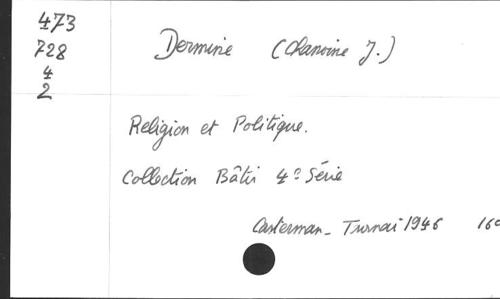 473
728
4
2
Dermine (Chanoine J.)
Religion et Politique.
Collection Bâtir 4e Série
Casterman - Turnai 1946 160